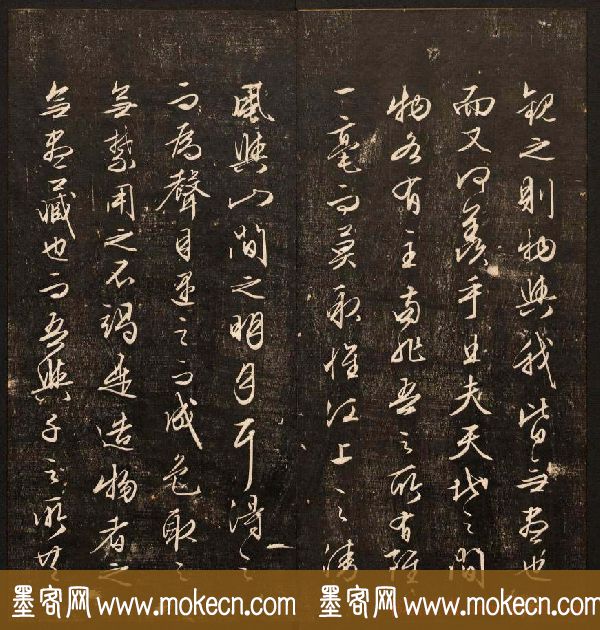 觀之則物與我皆無盡也
而又何羨乎且夫天地之間
物各有主苟非吾之所有雖
一毫而莫取惟江上之清
風與山間之明月耳得之
而為聲目遇之而成色取之
無禁用之不竭是造物者之
無盡藏也而吾與子之所共
墨客网 www.mokecn.com 墨客网 www.mokecn.com